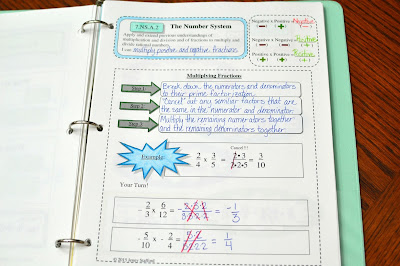 7.NS.A.2
The Number System
Apply and extend previous understandings of
multiplication and division and of fractions to multiply and
divide rational numbers.
I can multiply positive and negative fractions
Negative x Positive = Negative
Negative x Negative = Positive
Positive x Positive = Positive
Multiplying Fractions
Step 1
Break down the numerators and denominators
to their prime factorization.
Step 2
"Cancel" out any similar factors that are
the same in the numerator and denominator.
Step 3
Multiply the remaining numerators together
and the remaining denominators together.
Example:
Cancel!!!
2/4 x 3/5 = 2·3/2·2·5 = 3/10
Your Turn!
- 2/3 x 6/12 = = -1/3
- 5/10 x - 2/4 = = 1/4